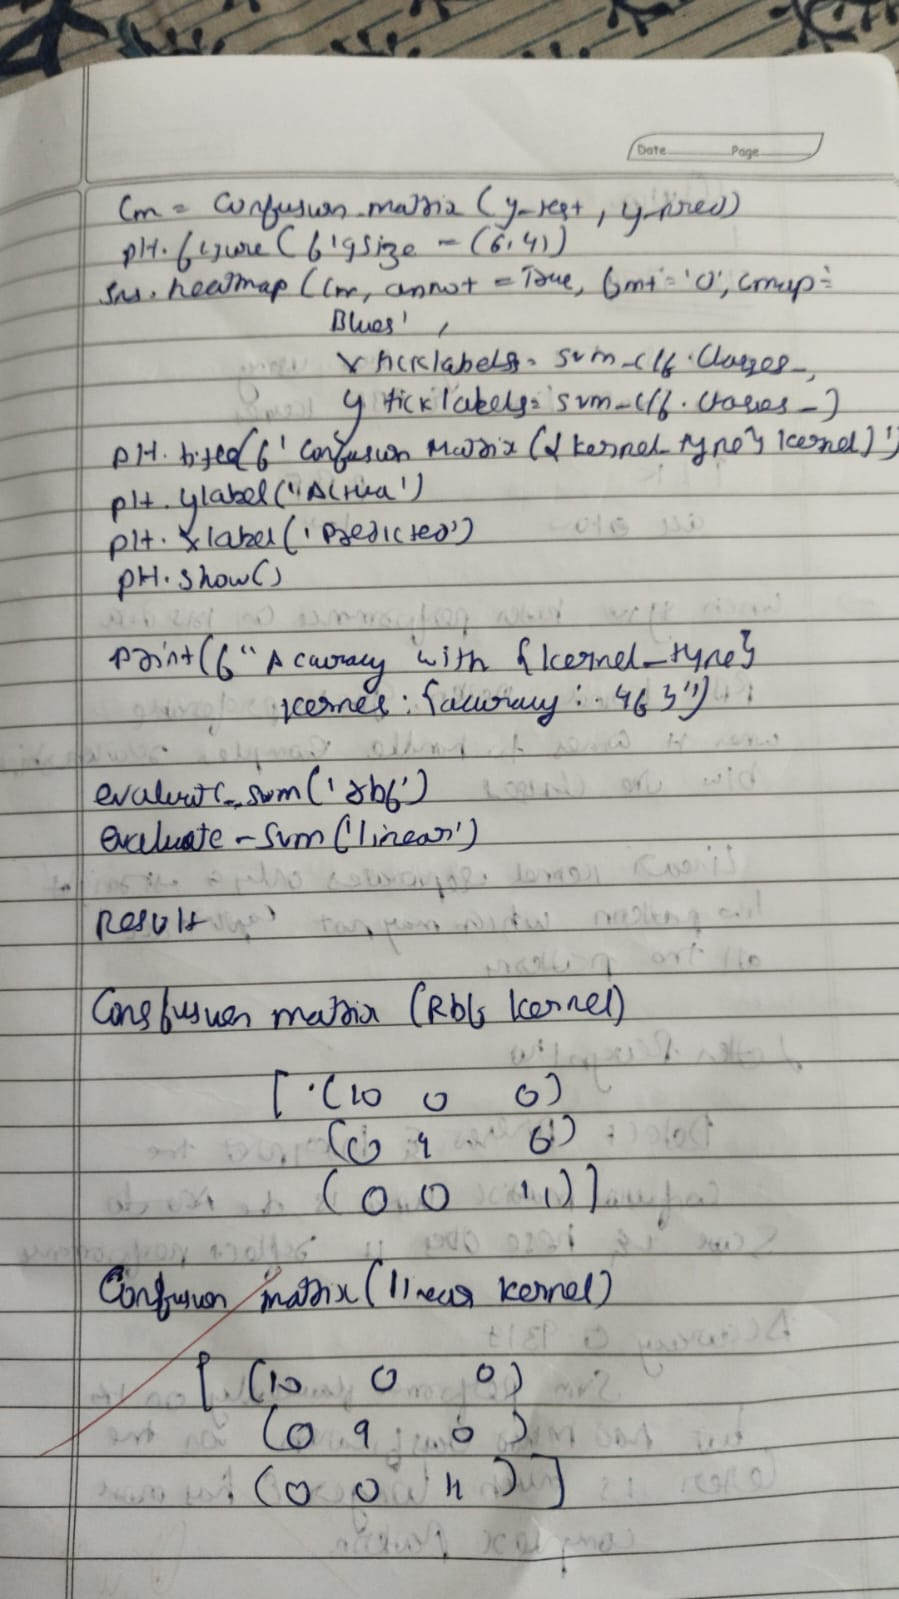 Date Page
Cm = Confusion-matrix (y-test, y-pred)
plt. figure (figsize = (6,4))
sns. heatmap (Cm, annot = True, fmt = 'd', cmap =
Blues',
xticklabels = svm-clf. Classes-,
yticklabels = svm-clf. classes-)
plt. title(f' Confusion Matrix ({kernel-type} kernel)')
plt. ylabel('Actual')
plt. xlabel('Predicted')
plt. show()
print(f" Accuracy with {kernel-type}
kernel: {accuracy: .4f}")
evaluate-svm('rbf')
evaluate-svm('linear')
Result
Confusion matrix (Rbf kernel)
[ (10 0 0)
(0 9 0)
(0 0 11)]
Confusion matrix (linear kernel)
[ (10 0 0)
(0 9 0)
(0 0 11)]